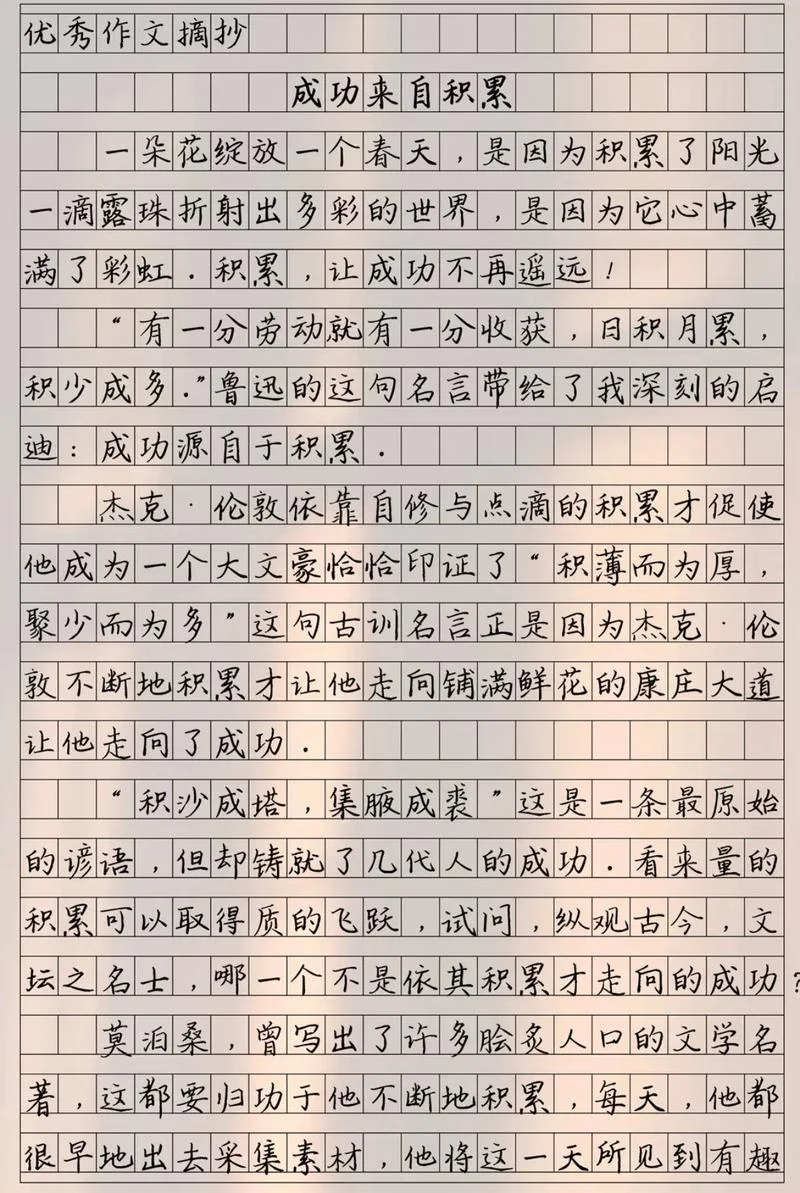 优秀作文摘抄
成功来自积累
一朵花绽放一个春天，是因为积累了阳光
一滴露珠折射出多彩的世界，是因为它心中蓄
满了彩虹．积累，让成功不再遥远！
“有一分劳动就有一分收获，日积月累，
积少成多．”鲁迅的这句名言带给了我深刻的启
迪：成功源自于积累．
杰克·伦敦依靠自修与点滴的积累才促使
他成为一个大文豪恰恰印证了“积薄而为厚，
聚少而为多”这句古训名言正是因为杰克·伦
敦不断地积累才让他走向铺满鲜花的康庄大道
让他走向了成功．
“积沙成塔，集腋成裘”这是一条最原始
的谚语，但却铸就了几代人的成功．看来量的
积累可以取得质的飞跃，试问，纵观古今，文
坛之名士，哪一个不是依其积累才走向的成功？
莫泊桑，曾写出了许多脍炙人口的文学名
著，这都要归功于他不断地积累，每天，他都
很早地出去采集素材，他将这一天所见到有趣